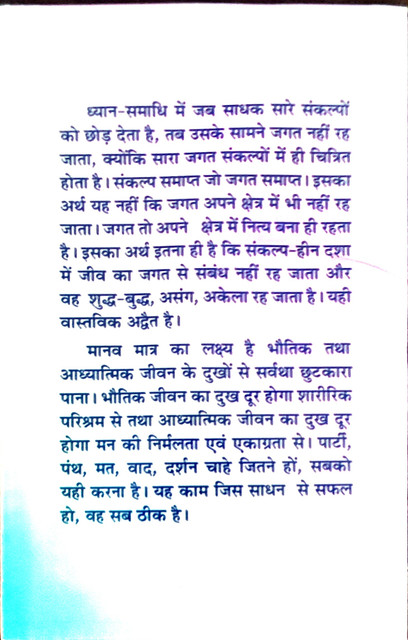 ध्यान-समाधि में जब साधक सारे संकल्पों
को छोड़ देता है, तब उसके सामने जगत नहीं रह
जाता, क्योंकि सारा जगत संकल्पों में ही चित्रित
होता है। संकल्प समाप्त जो जगत समाप्त। इसका
अर्थ यह नहीं कि जगत अपने क्षेत्र में भी नहीं रह
जाता। जगत तो अपने क्षेत्र में नित्य बना ही रहता
है। इसका अर्थ इतना ही है कि संकल्प-हीन दशा
में जीव का जगत से संबंध नहीं रह जाता और
वह शुद्ध-बुद्ध, असंग, अकेला रह जाता है। यही
वास्तविक अद्वैत है।
मानव मात्र का लक्ष्य है भौतिक तथा
आध्यात्मिक जीवन के दुखों से सर्वथा छुटकारा
पाना। भौतिक जीवन का दुख दूर होगा शारीरिक
परिश्रम से तथा आध्यात्मिक जीवन का दुख दूर
होगा मन की निर्मलता एवं एकाग्रता से। पार्टी,
पंथ, मत, वाद, दर्शन चाहे जितने हों, सबको
यही करना है। यह काम जिस साधन से सफल
हो, वह सब ठीक है।